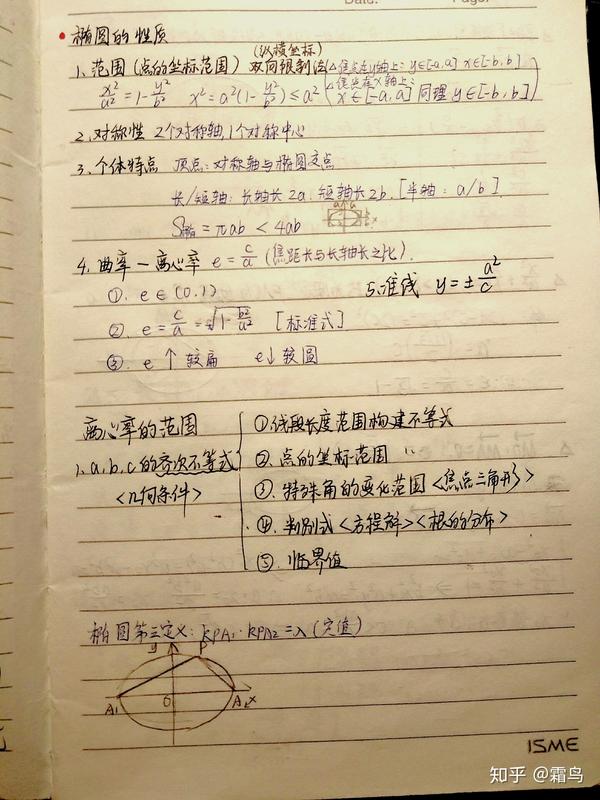 Date:
Page:
椭圆的性质
(纵横坐标)
1. 范围 (点的坐标范围) 双向限制法
△焦点在y轴上: y∈[-a, a] x∈[-b, b]
△焦点在x轴上:
x∈[-a, a] 同理 y∈[-b, b]
x²/a² = 1 - y²/b²   x² = a²(1 - y²/b²) ≤ a²
2. 对称性 2个对称轴, 1个对称中心
3. 个体特点 顶点: 对称轴与椭圆交点
长/短轴: 长轴长 2a, 短轴长 2b. [半轴: a/b]
S椭 = πab < 4ab
4. 曲率 — 离心率 e = c/a (焦距长与长轴长之比).
①. e∈(0,1)
5. 准线 y = ± a²/c
②. e = c/a = √(1 - b²/a²) [标准式]
③. e↑ 较扁 e↓ 较圆
离心率的范围
1. a, b, c 的齐次不等式
<几何条件>
①. 线段长度范围构建不等式
②. 点的坐标范围 〃
③. 特殊角的变化范围 <焦点三角形>
④. 判别式 <方程解> <根的分布>
⑤. 临界值
椭圆第三定义: kPA₁ · kPA₂ = λ (定值)
y
P
A₁
O
A₂
x
ISME
知乎 @霜鸟